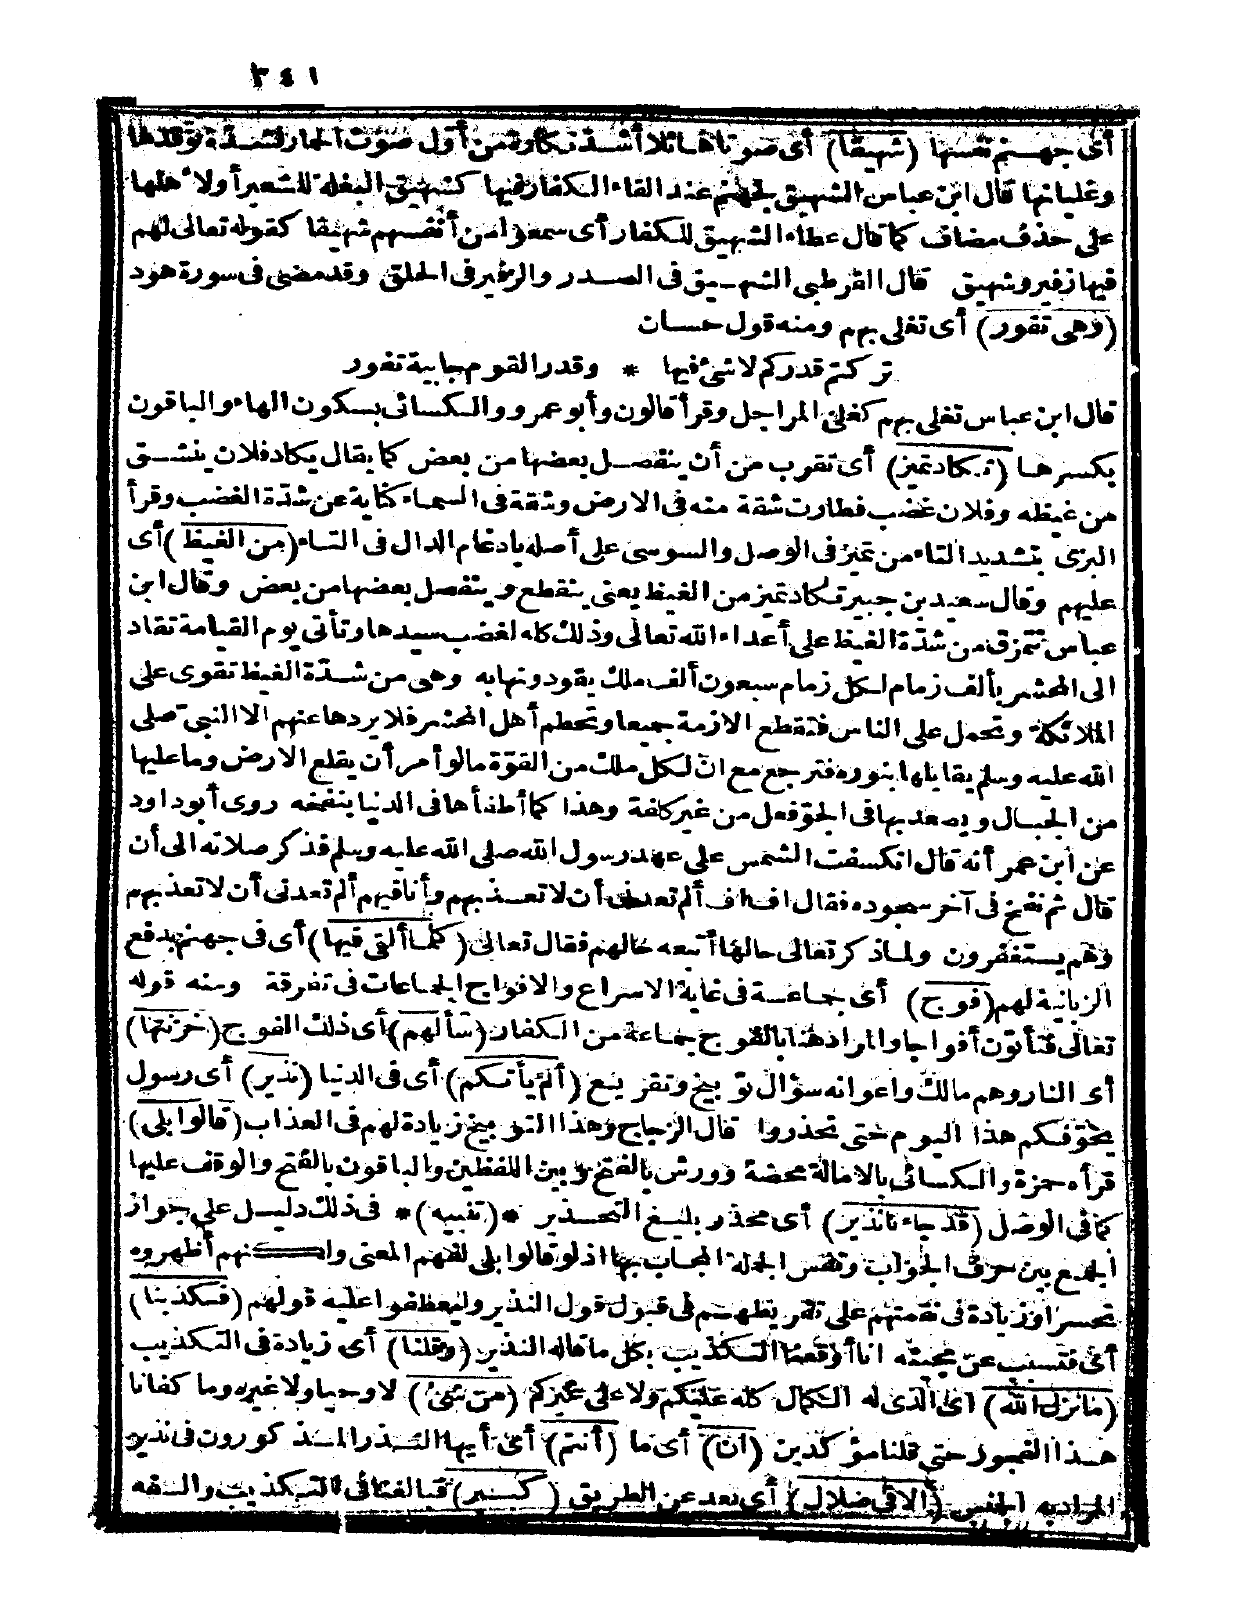 ٣٤١
أى جهنم نفسها (شهيقا) أى صوتا هائلا أشد نكارة من أول صوت الحمار لشدة توقدها
وغليانها قال ابن عباس الشهيق لجهنم عند القاء الكفار فيها كشهيق البغلة للشعير أو لاهلها
على حذف مضاف كما قال عطاء الشهيق للكفار أى سمعوا من أنفسهم شهيقا كقوله تعالى لهم
فيها زفير وشهيق قال القرطبى الشهيق فى الصدر والزفير فى الحلق وقد مضى فى سورة هود
(وهى تفور) أى تغلى بهم ومنه قول حسان
تركتم قدركم لا شئ فيها * وقدر القوم حامية تفور
قال ابن عباس تغلى بهم كغلى المراجل وقرأ قالون وأبو عمرو والكسائى بسكون الهاء والباقون
بكسرها (تكاد تميز) أى تقرب من أن ينفصل بعضها من بعض كما يقال يكاد فلان ينشق
من غيظه وفلان غضب فطارت شقة منه فى الارض وشقة فى السماء كناية عن شدة الغضب وقرأ
البزى بتشديد التاء من تميز فى الوصل والسوسى على أصله بادغام الدال فى التاء (من الغيظ) أى
عليهم وقال سعيد بن جبير تكاد تميز من الغيظ يعنى ينقطع وينفصل بعضها من بعض وقال ابن
عباس تتمزق من شدة الغيظ على أعداء الله تعالى وذلك كله لغضب سيدها وتأتى يوم القيامة تقاد
الى المحشر بألف زمام لكل زمام سبعون ألف ملك يقودونها به وهى من شدة الغيظ تقوى على
الملائكة وتحمل على الناس فتقطع الازمة جميعا وتحطم أهل المحشر فلا يردها عنهم الا النبى صلى
الله عليه وسلم يقابلها بنوره فترجع مع ان لكل ملك من القوة ما لو أمر أن يقلع الارض وما عليها
من الجبال ويصعد بها فى الجو فعل من غير كلفة وهذا كما أطفأها فى الدنيا بنفخه روى أبو داود
عن ابن عمر أنه قال انكسفت الشمس على عهد رسول الله صلى الله عليه وسلم فذكر صلاته الى أن
قال ثم نفخ فى آخر سجوده فقال اف اف ألم تعدنى أن لا تعذبهم وأنا فيهم ألم تعدنى أن لا تعذبهم
وهم يستغفرون ولما ذكر تعالى حالها أتبعه حالهم فقال تعالى (كلما ألقى فيها) أى فى جهنم بدفع
الزبانية لهم (فوج) أى جماعة فى غاية الاسراع والافواج الجماعات فى تفرقة ومنه قوله
تعالى فتأتون أفواجا والمراد هنا بالفوج جماعة من الكفار (سألهم) أى ذلك الفوج (خزنتها)
أى النار وهم مالك واعوانه سؤال توبيخ وتقريع (ألم يأتكم) أى فى الدنيا (نذير) أى رسول
يخوفكم هذا اليوم حتى تحذروا قال الزجاج وهذا التوبيخ زيادة لهم فى العذاب (قالوا بلى)
قرأه حمزة والكسائى بالامالة محضة وورش بالفتح وبين اللفظين والباقون بالفتح والوقف عليها
كما فى الوصل (قد جاءنا نذير) أى محذر بليغ التحذير *(تنبيه)* فى ذلك دليل على جواز
الجمع بين حرف الجواب ونفس الجملة المجاب بها اذ لو قالوا بلى لفهم المعنى ولكنهم أظهروه
تحسرا وزيادة فى نقمتهم على تفريطهم فى قبول قول النذير وليعطفوا عليه قولهم (فكذبنا)
أى فتسبب عن مجيئه انا أوقعنا التكذيب بكل ما قاله النذير (وقلنا) أى زيادة فى التكذيب
(ما نزل الله) أى الذى له الكمال كله عليكم ولا على غيركم (من شئ) لا وحيا ولا غيره وما كفانا
هذا الفجور حتى قلنا مؤكدين (ان) أى ما (أنتم) أى أيها النذر المذكورون فى نذير
المراد به الجنس (الا فى ضلال) أى بعد عن الطريق (كبير) فبالغنا فى التكذيب والسفه